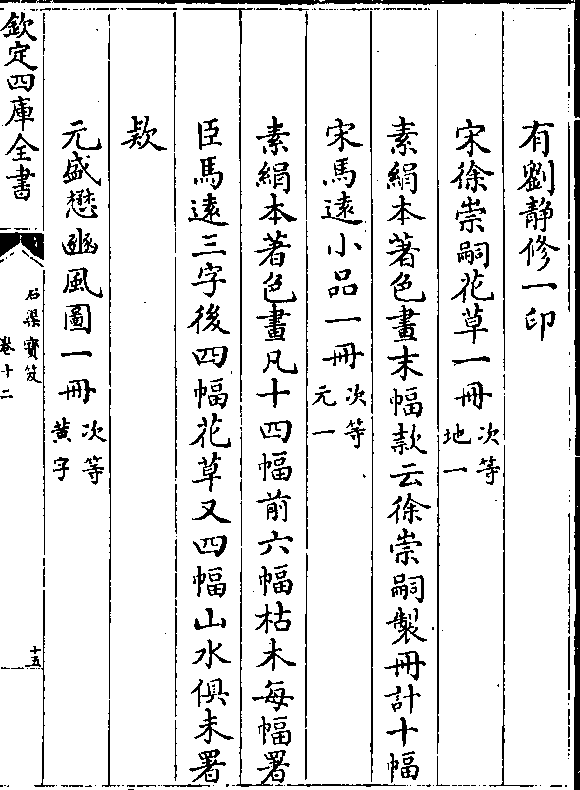 有劉静修一印
宋徐崇嗣花草一冊次等地一
素絹本著色畫末幅款云徐崇嗣製冊計十幅
宋馬遠小品一冊次等元一
素絹本著色畫凡十四幅前六幅枯木每幅署
臣馬遠三字後四幅花草又四幅山水俱未署
欵
元盛懋豳風圖一冊次等黄字
欽定四庫全書
石渠寶笈
卷十二
十五